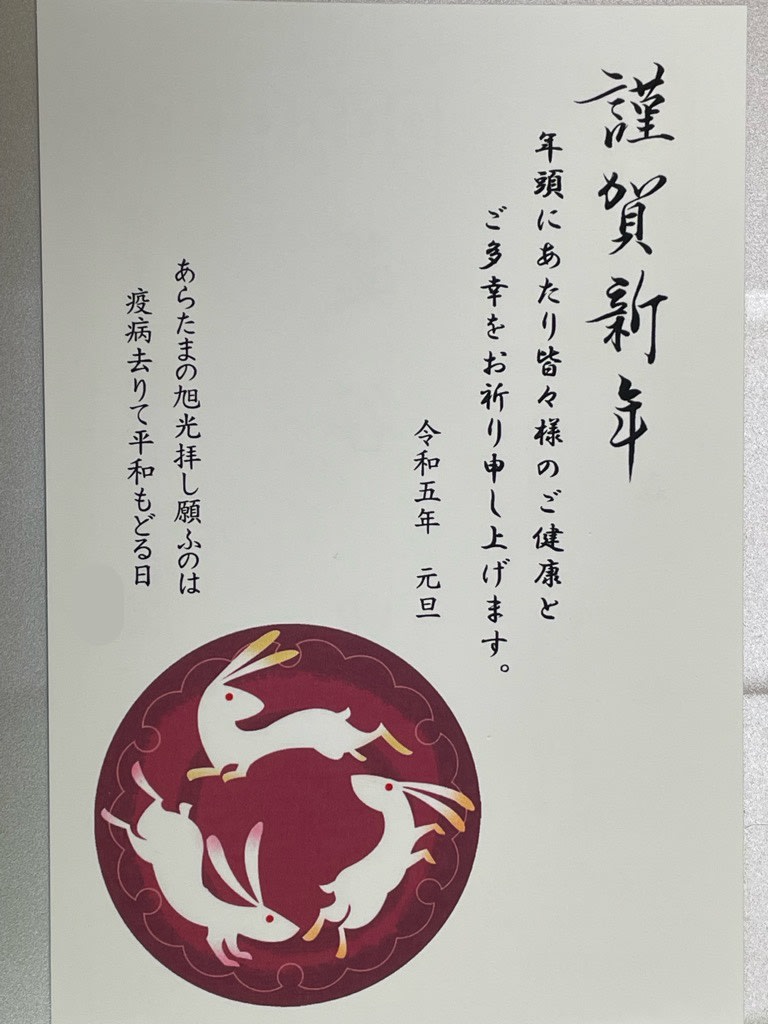 謹賀新年
年頭にあたり皆々様のご健康と
ご多幸をお祈り申し上げます。
令和五年　元旦
あらたまの旭光拝し願ふのは
疫病去りて平和もどる日